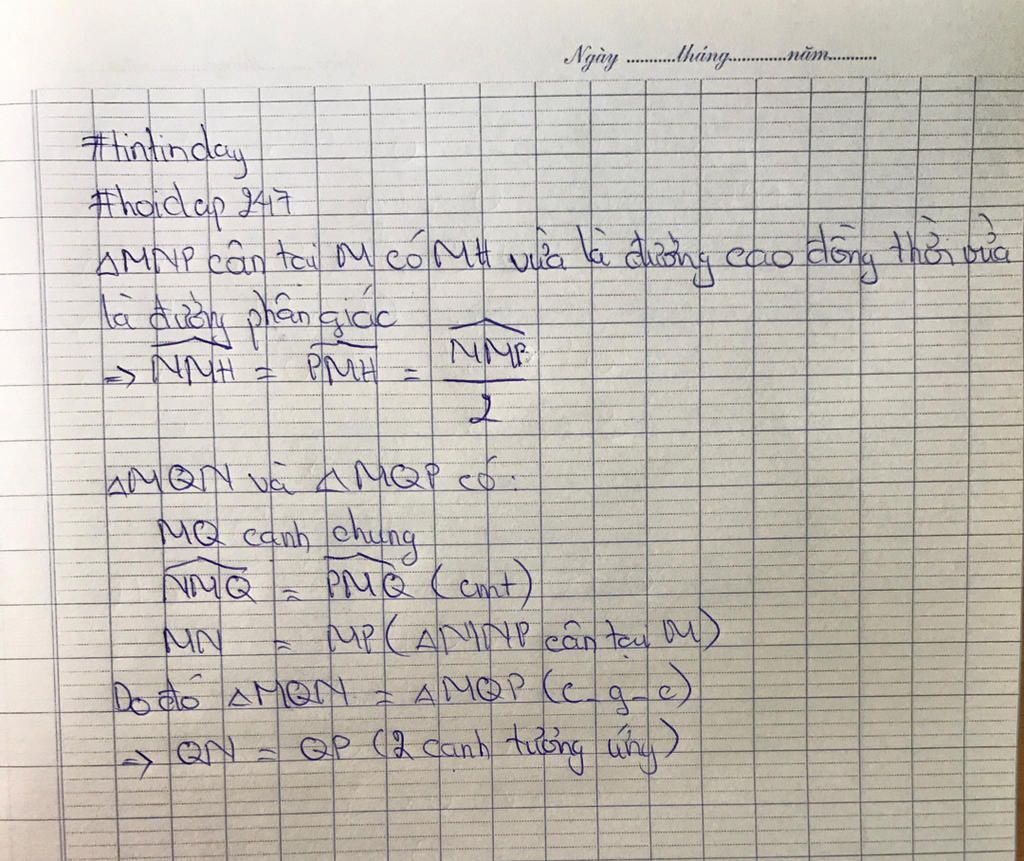 Ngày ...........tháng.............năm...........
#tintinday
#hoidap247
ΔMNP cân tại M có MH vừa là đường cao đồng thời vừa
là đường phân giác
=> \widehat{NMH} = \widehat{PMH} = \frac{\widehat{NMP}}{2}
ΔMQN và ΔMQP có:
MQ cạnh chung
\widehat{NMQ} = \widehat{PMQ} (cmt)
MN = MP (ΔMNP cân tại M)
Do đó ΔMQN = ΔMQP (c_g_c)
=> QN = QP (2 cạnh tương ứng)